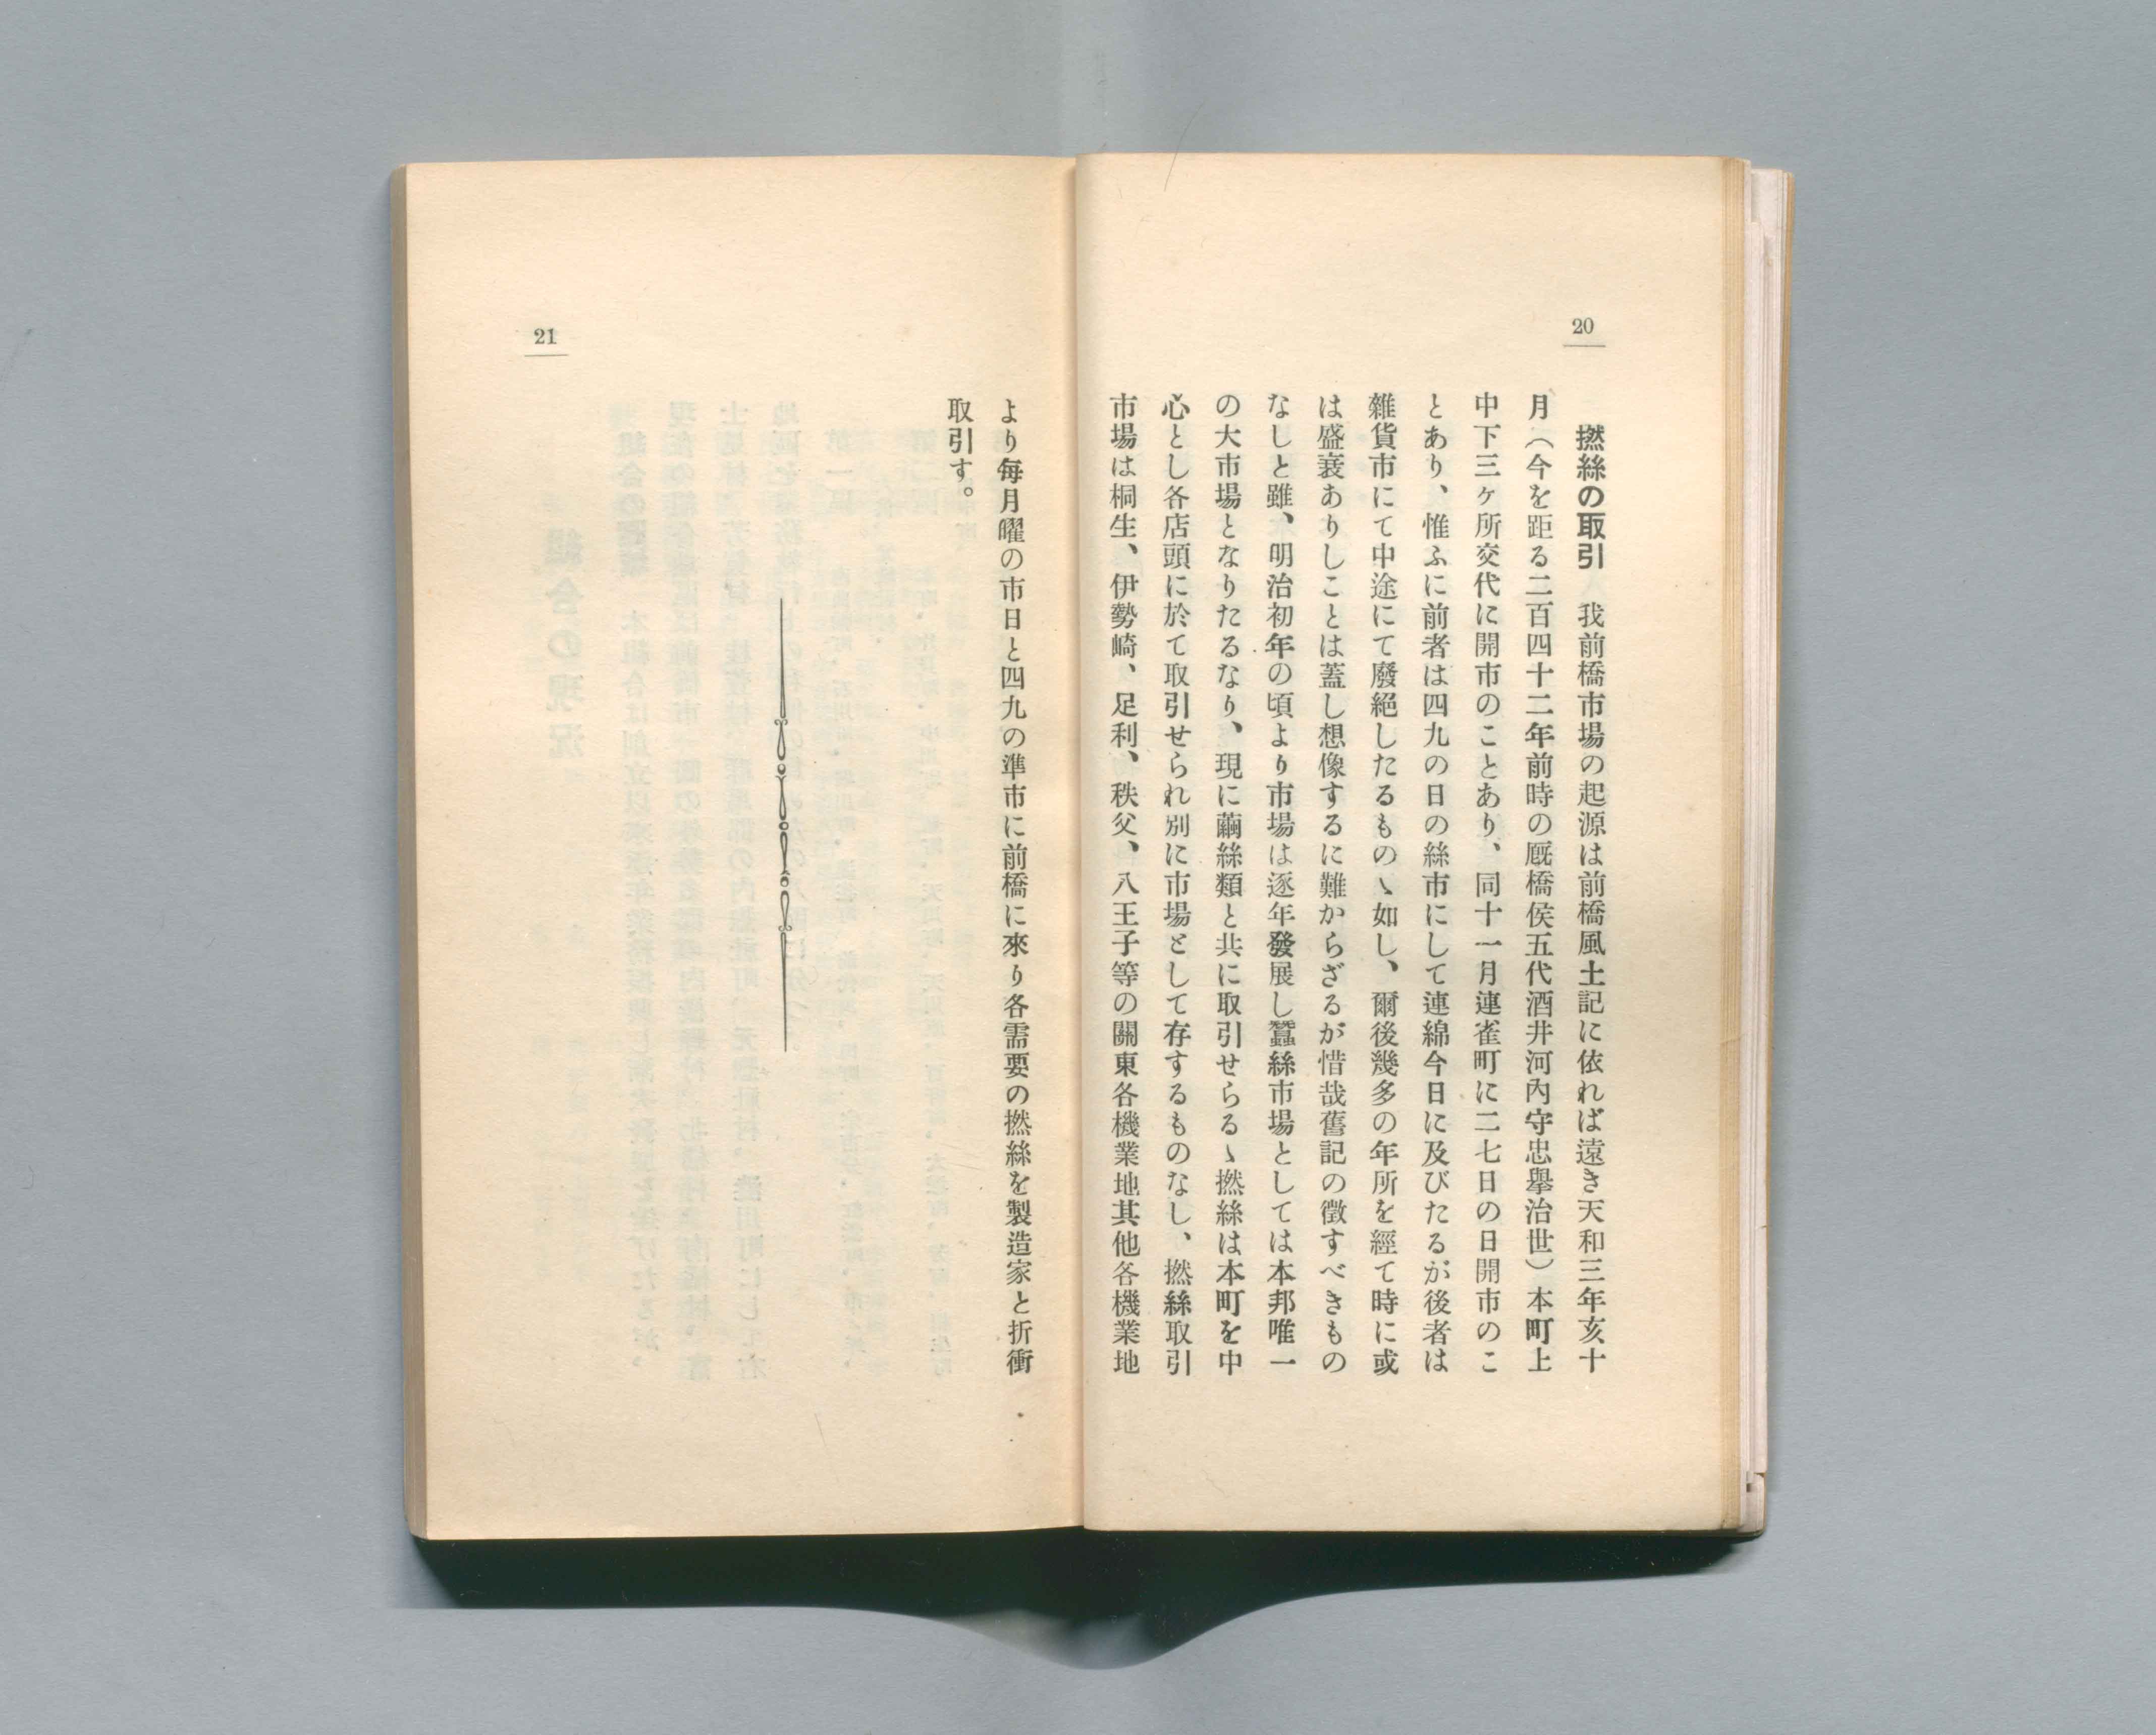 20
撚絲の取引　我前橋市場の起源は前橋風土記に依れば遠き天和三年亥十
月（今を距る二百四十二年前時の厩橋侯五代酒井河內守忠擧治世）本町上
中下三ヶ所交代に開市のことあり、同十一月連雀町に二七日の日開市のこ
とあり、惟ふに前者は四九の日の絲市にして連綿今日に及びたるが後者は
雜貨市にて中途にて廢絕したるものヽ如し、爾後幾多の年所を經て時に或
は盛衰ありしことは蓋し想像するに難からざるが惜哉舊記の徵すべきもの
なしと雖、明治初年の頃より市場は逐年發展し蠶絲市場としては本邦唯一
の大市場となりたるなり、現に繭絲類と共に取引せらるヽ撚絲は本町を中
心とし各店頭に於て取引せられ別に市場として存するものなし、撚絲取引
市場は桐生、伊勢崎、足利、秩父、八王子等の關東各機業地其他各機業地
21
より每月曜の市日と四九の準市に前橋に來り各需要の撚絲を製造家と折衝
取引す。